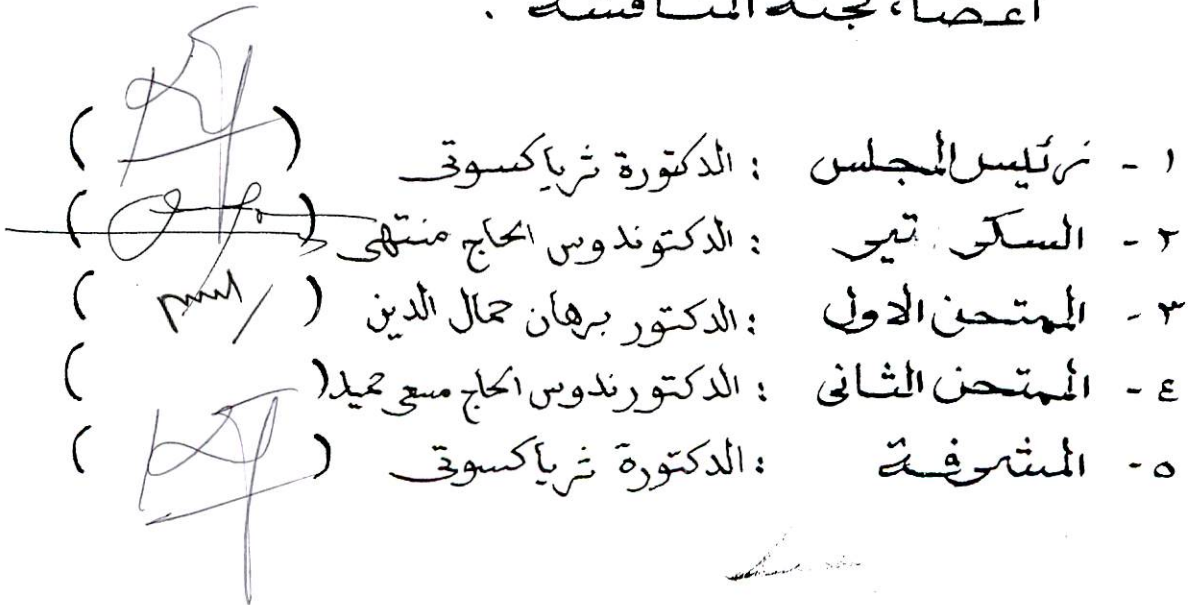 أعضاء لجنة المناقشة :
١ - رئيس المجلس : الدكتورة ثريا كسوتى ( )
٢ - السكرتير : الدكتوندوس الحاج منتهى ( )
٣ - الممتحن الاول : الدكتور برهان جمال الدين ( )
٤ - الممتحن الثانى : الدكتورندوس الحاج مسعى حميد ( )
٥ - المشرفة : الدكتورة ثريا كسوتى ( )